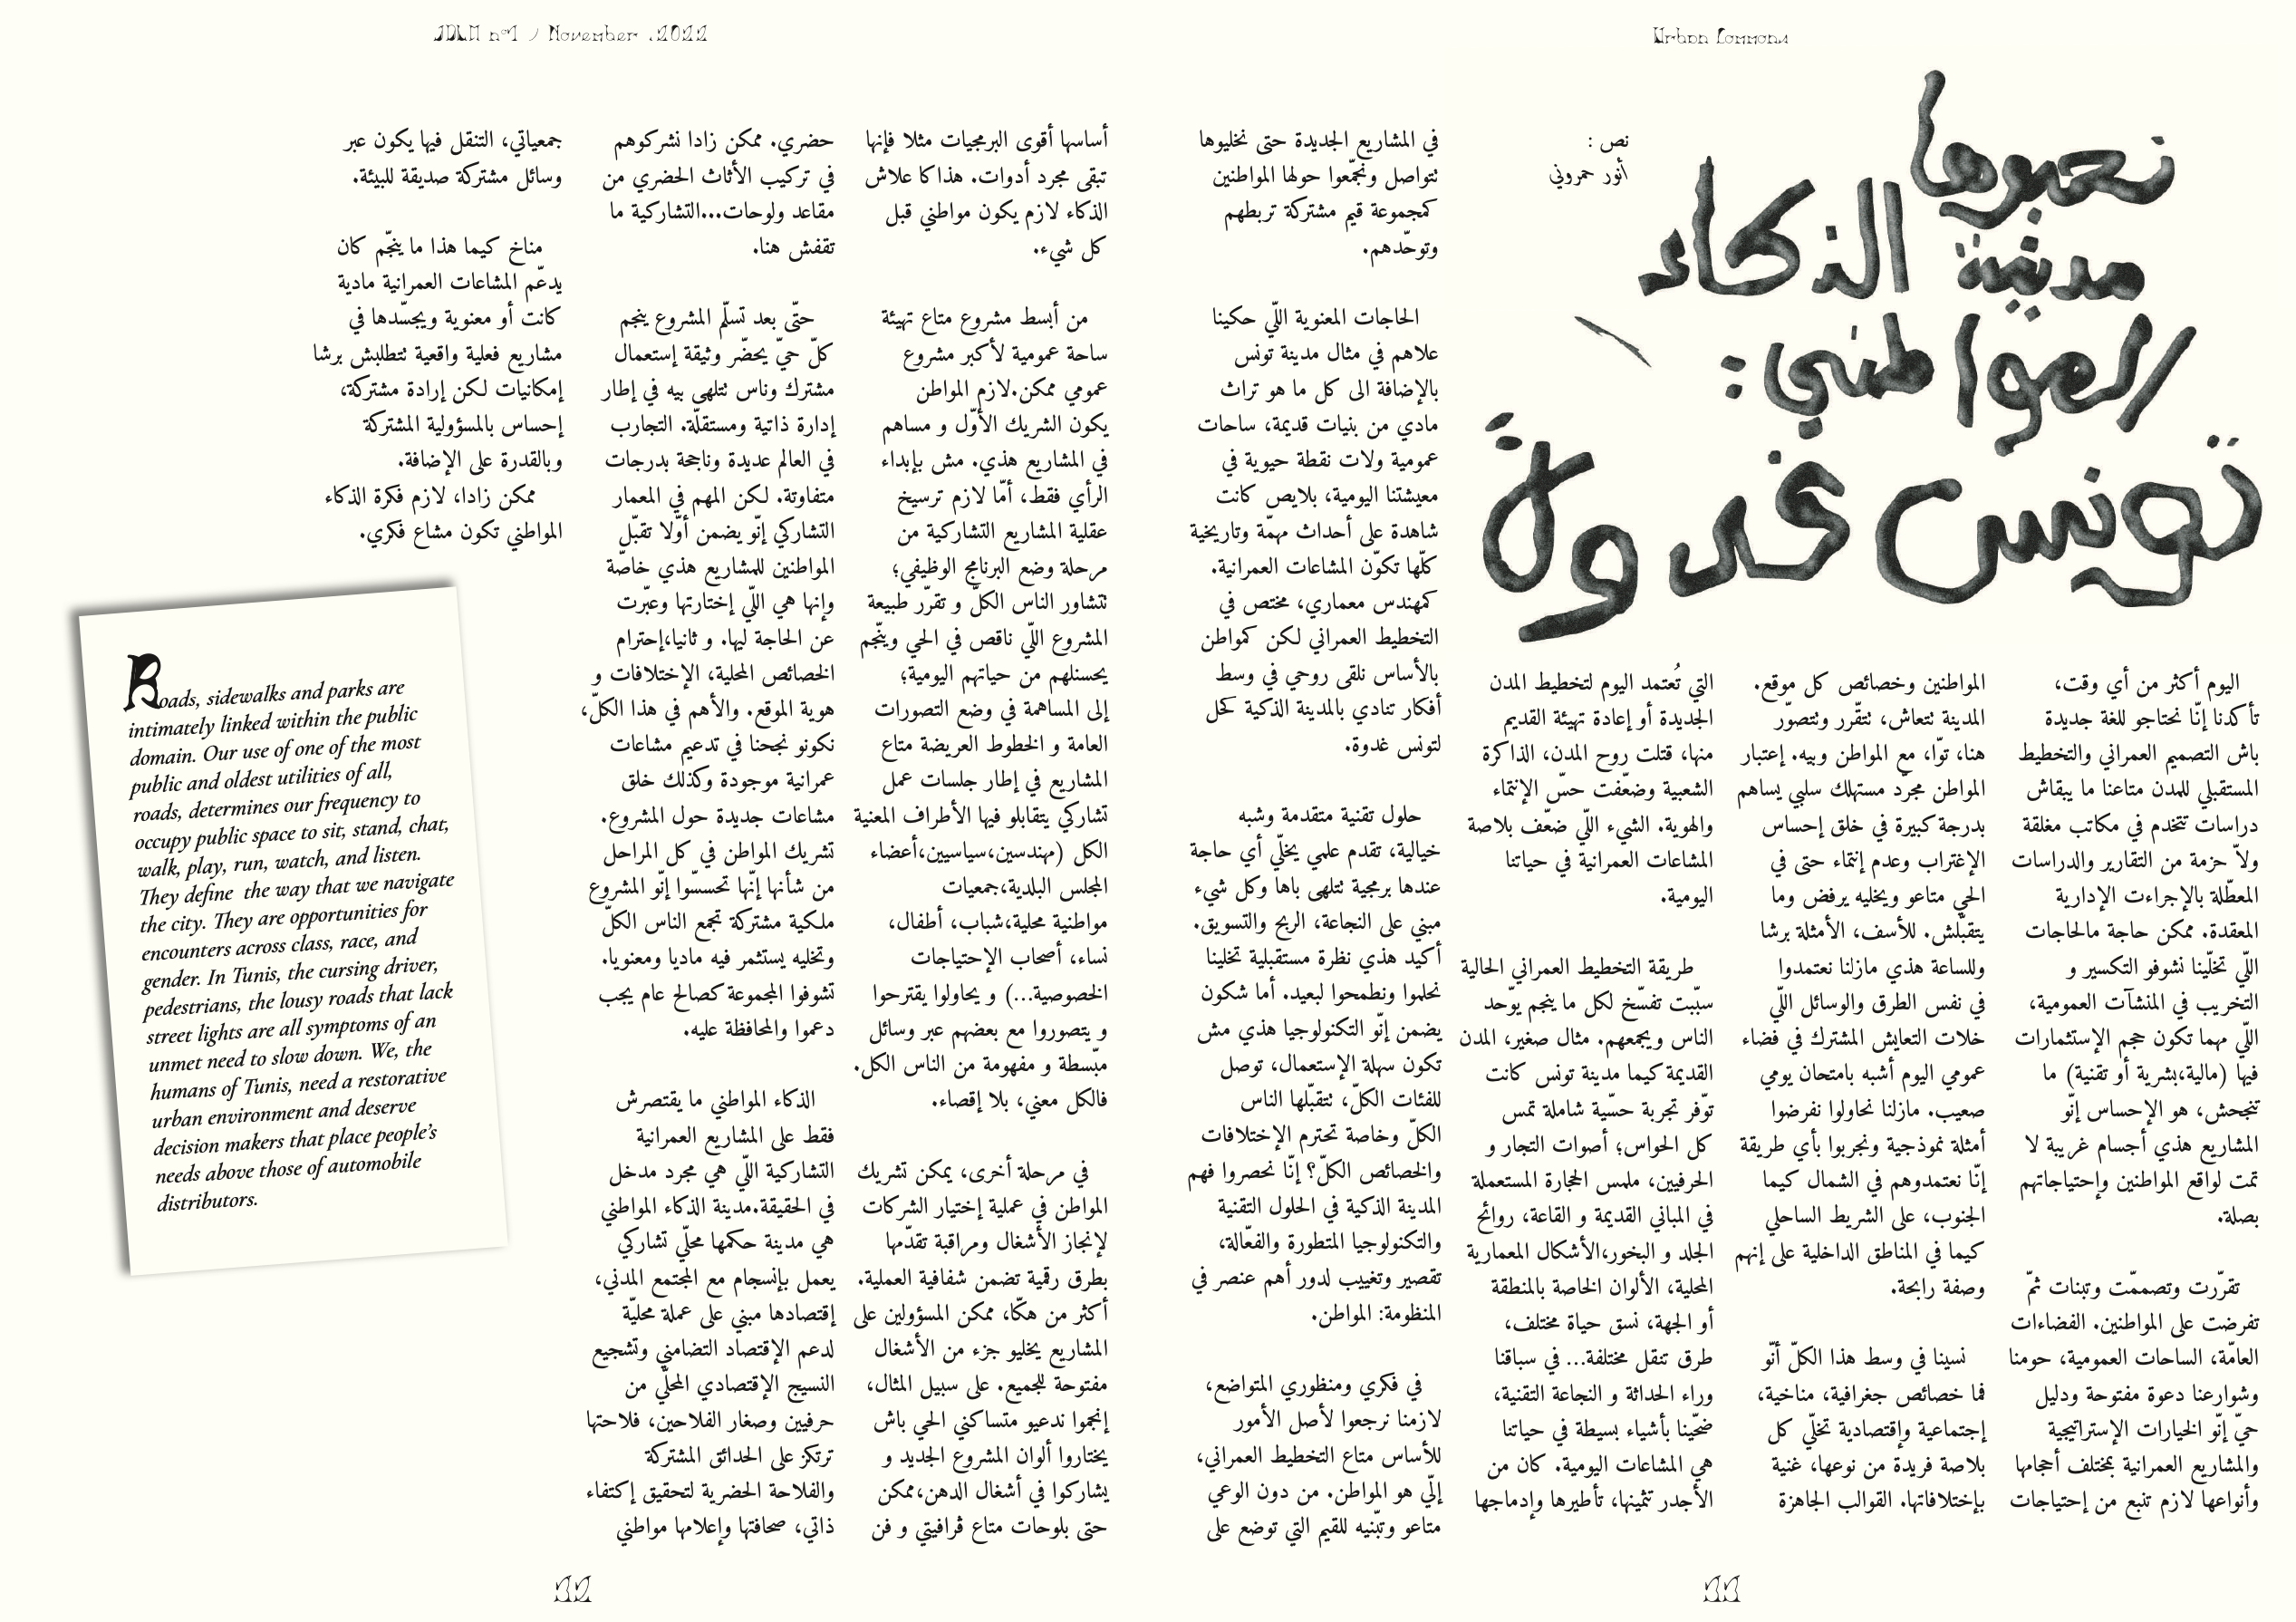 Urban Commons
نحبوها
مدينة الذكاء
المواطني:
تونس غدوة
نص :
أنور حمروني
اليوم أكثر من أي وقت،
تأكدنا إنّا نحتاجو للغة جديدة
باش التصميم العمراني والتخطيط
المستقبلي للمدن متاعنا ما يبقاش
دراسات تتخدم في مكاتب مغلقة
ولاّ حزمة من التقارير والدراسات
المعطّلة بالإجراءت الإدارية
المعقدة. ممكن حاجة مالحاجات
اللّي تخلّينا نشوفو التكسير و
التخريب في المنشآت العمومية،
اللّي مهما تكون حجم الإستثمارات
فيها (مالية،بشرية أو تقنية) ما
تنجحش، هو الإحساس إنّو
المشاريع هذي أجسام غريبة لا
تمت لواقع المواطنين وإحتياجاتهم
بصلة.
تقرّرت وتصممّت وتبنات ثمّ
تفرضت على المواطنين. الفضاءات
العامّة، الساحات العمومية، حومنا
وشوارعنا دعوة مفتوحة ودليل
حيّ إنّو الخيارات الإستراتيجية
والمشاريع العمرانية بمختلف أحجامها
وأنواعها لازم تنبع من إحتياجات
المواطنين وخصائص كل موقع.
المدينة تتعاش، تتقّرر وتتصوّر
هنا، توّا، مع المواطن وبيه. إعتبار
المواطن مجرّد مستهلك سلبي يساهم
بدرجة كبيرة في خلق إحساس
الإغتراب وعدم إنتماء حتى في
الحي متاعو ويخليه يرفض وما
يتقبّلش. للأسف، الأمثلة برشا
وللساعة هذي مازلنا نعتمدوا
في نفس الطرق والوسائل اللّي
خلات التعايش المشترك في فضاء
عمومي اليوم أشبه بامتحان يومي
صعيب. مازلنا نحاولوا نفرضوا
أمثلة نموذجية ونجربوا بأي طريقة
إنّا نعتمدوهم في الشمال كيما
الجنوب، على الشريط الساحلي
كيما في المناطق الداخلية على إنهم
وصفة رابحة.
نسينا في وسط هذا الكلّ أنّو
فما خصائص جغرافية، مناخية،
إجتماعية وإقتصادية تخلّي كل
بلاصة فريدة من نوعها، غنية
بإختلافاتها. القوالب الجاهزة
التي تُعتمد اليوم لتخطيط المدن
الجديدة أو إعادة تهيئة القديم
منها، قتلت روح المدن، الذاكرة
الشعبية وضعّفت حسّ الإنتماء
والهوية. الشيء اللّي ضعّف بلاصة
المشاعات العمرانية في حياتنا
اليومية.
طريقة التخطيط العمراني الحالية
سبّبت تفسّخ لكل ما ينجم يوّحد
الناس ويجمعهم. مثال صغير، المدن
القديمة كيما مدينة تونس كانت
توّفر تجربة حسّية شاملة تمس
كل الحواس؛ أصوات التجار و
الحرفيين، ملمس الحجارة المستعملة
في المباني القديمة و القاعة، روائح
الجلد و البخور،الأشكال المعمارية
المحلية، الألوان الخاصة بالمنطقة
أو الجهة، نسق حياة مختلف،
طرق تنقل مختلفة... في سباقنا
وراء الحداثة و النجاعة التقنية،
ضحّينا بأشياء بسيطة في حياتنا
هي المشاعات اليومية. كان من
الأجدر تثمينها، تأطيرها وإدماجها
في المشاريع الجديدة حتى نخليوها
تتواصل ونجمّعوا حولها المواطنين
كمجموعة قيم مشتركة تربطهم
وتوحّدهم.
الحاجات المعنوية اللّي حكينا
علاهم في مثال مدينة تونس
بالإضافة الى كل ما هو تراث
مادي من بنيات قديمة، ساحات
عمومية ولات نقطة حيوية في
معيشتنا اليومية، بلايص كانت
شاهدة على أحداث مهمّة وتاريخية
كلّها تكوّن المشاعات العمرانية.
كمهندس معماري، مختص في
التخطيط العمراني لكن كمواطن
بالأساس نلقى روحي في وسط
أفكار تنادي بالمدينة الذكية كحل
لتونس غدوة.
حلول تقنية متقدمة وشبه
خيالية، تقدم علمي يخلّي أي حاجة
عندها برمجية تتلهى باها وكل شيء
مبني على النجاعة، الربح والتسويق.
أكيد هذي نظرة مستقبلية تخلينا
نحلموا ونطمحوا لبعيد. أما شكون
يضمن إنّو التكنولوجيا هذي مش
تكون سهلة الإستعمال، توصل
للفئات الكلّ، تتقبّلها الناس
الكلّ وخاصة تحترم الإختلافات
والخصائص الكلّ؟ إنّا نحصروا فهم
المدينة الذكية في الحلول التقنية
والتكنولوجيا المتطورة والفعّالة،
تقصير وتغييب لدور أهم عنصر في
المنظومة: المواطن.
في فكري ومنظوري المتواضع،
لازمنا نرجعوا لأصل الأمور
للأساس متاع التخطيط العمراني،
إلّي هو المواطن. من دون الوعي
متاعو وتبّنيه للقيم التي توضع على
11
JDLM n°1 / November .2022
أساسها أقوى البرمجيات مثلا فإنها
تبقى مجرد أدوات. هذاكا علاش
الذكاء لازم يكون مواطني قبل
كل شيء.
من أبسط مشروع متاع تهيئة
ساحة عمومية لأكبر مشروع
عمومي ممكن.لازم المواطن
يكون الشريك الأوّل و مساهم
في المشاريع هذي. مش بإبداء
الرأي فقط، أمّا لازم ترسيخ
عقلية المشاريع التشاركية من
مرحلة وضع البرنامج الوظيفي؛
تتشاور الناس الكلّ و تقرّر طبيعة
المشروع اللّي ناقص في الحي وينّجم
يحسنلهم من حياتهم اليومية؛
إلى المساهمة في وضع التصورات
العامة و الخطوط العريضة متاع
المشاريع في إطار جلسات عمل
تشاركي يتقابلو فيها الأطراف المعنية
الكل (مهندسين،سياسيين،أعضاء
المجلس البلدية،جمعيات
مواطنية محلية،شباب، أطفال،
نساء، أصحاب الإحتياجات
الخصوصية...) و يحاولوا يقترحوا
و يتصوروا مع بعضهم عبر وسائل
مبّسطة و مفهومة من الناس الكل.
فالكل معني، بلا إقصاء.
في مرحلة أخرى، يمكن تشريك
المواطن في عملية إختيار الشركات
لإنجاز الأشغال ومراقبة تقدّمها
بطرق رقمية تضمن شفافية العملية.
أكثر من هكّا، ممكن المسؤولين على
المشاريع يخليو جزء من الأشغال
مفتوحة للجميع. على سبيل المثال،
إنجموا ندعيو متساكني الحي باش
يختاروا ألوان المشروع الجديد و
يشاركوا في أشغال الدهن،ممكن
حتى بلوحات متاع ڤرافيتي و فن
حضري. ممكن زادا نشركوهم
في تركيب الأثاث الحضري من
مقاعد ولوحات...التشاركية ما
تقفش هنا.
حتّى بعد تسلّم المشروع ينجم
كلّ حيّ يحضّر وثيقة إستعمال
مشترك وناس تتلهى بيه في إطار
إدارة ذاتية ومستقلّة. التجارب
في العالم عديدة وناجحة بدرجات
متفاوتة. لكن المهم في المعمار
التشاركي إنّو يضمن أوّلا تقبّل
المواطنين للمشاريع هذي خاصّة
وإنها هي اللّي إختارتها وعبّرت
عن الحاجة ليها. و ثانيا،إحترام
الخصائص المحلية، الإختلافات و
هوية الموقع. والأهم في هذا الكلّ،
نكونو نجحنا في تدعيم مشاعات
عمرانية موجودة وكذلك خلق
مشاعات جديدة حول المشروع.
تشريك المواطن في كل المراحل
من شأنها إنّها تحسسّوا إنّو المشروع
ملكية مشتركة تجمع الناس الكلّ
وتخليه يستثمر فيه ماديا ومعنويا.
تشوفوا المجموعة كصالح عام يجب
دعموا والمحافظة عليه.
الذكاء المواطني ما يقتصرش
فقط على المشاريع العمرانية
التشاركية اللّي هي مجرد مدخل
في الحقيقة.مدينة الذكاء المواطني
هي مدينة حكمها محلّي تشاركي
يعمل بإنسجام مع المجتمع المدني،
إقتصادها مبني على عملة محليّة
لدعم الإقتصاد التضامني وتشجيع
النسيج الإقتصادي المحلّي من
حرفيين وصغار الفلاحين، فلاحتها
ترتكز على الحدائق المشتركة
والفلاحة الحضرية لتحقيق إكتفاء
ذاتي، صحافتها وإعلامها مواطني
جمعياتي، التنقل فيها يكون عبر
وسائل مشتركة صديقة للبيئة.
مناخ كيما هذا ما ينجّم كان
يدعّم المشاعات العمرانية مادية
كانت أو معنوية ويجسّدها في
مشاريع فعلية واقعية تتطلبش برشا
إمكانيات لكن إرادة مشتركة،
إحساس بالمسؤولية المشتركة
وبالقدرة على الإضافة.
ممكن زادا، لازم فكرة الذكاء
المواطني تكون مشاع فكري.
Roads, sidewalks and parks are
intimately linked within the public
domain. Our use of one of the most
public and oldest utilities of all,
roads, determines our frequency to
occupy public space to sit, stand, chat,
walk, play, run, watch, and listen.
They define the way that we navigate
the city. They are opportunities for
encounters across class, race, and
gender. In Tunis, the cursing driver,
pedestrians, the lousy roads that lack
street lights are all symptoms of an
unmet need to slow down. We, the
humans of Tunis, need a restorative
urban environment and deserve
decision makers that place people's
needs above those of automobile
distributors.
12